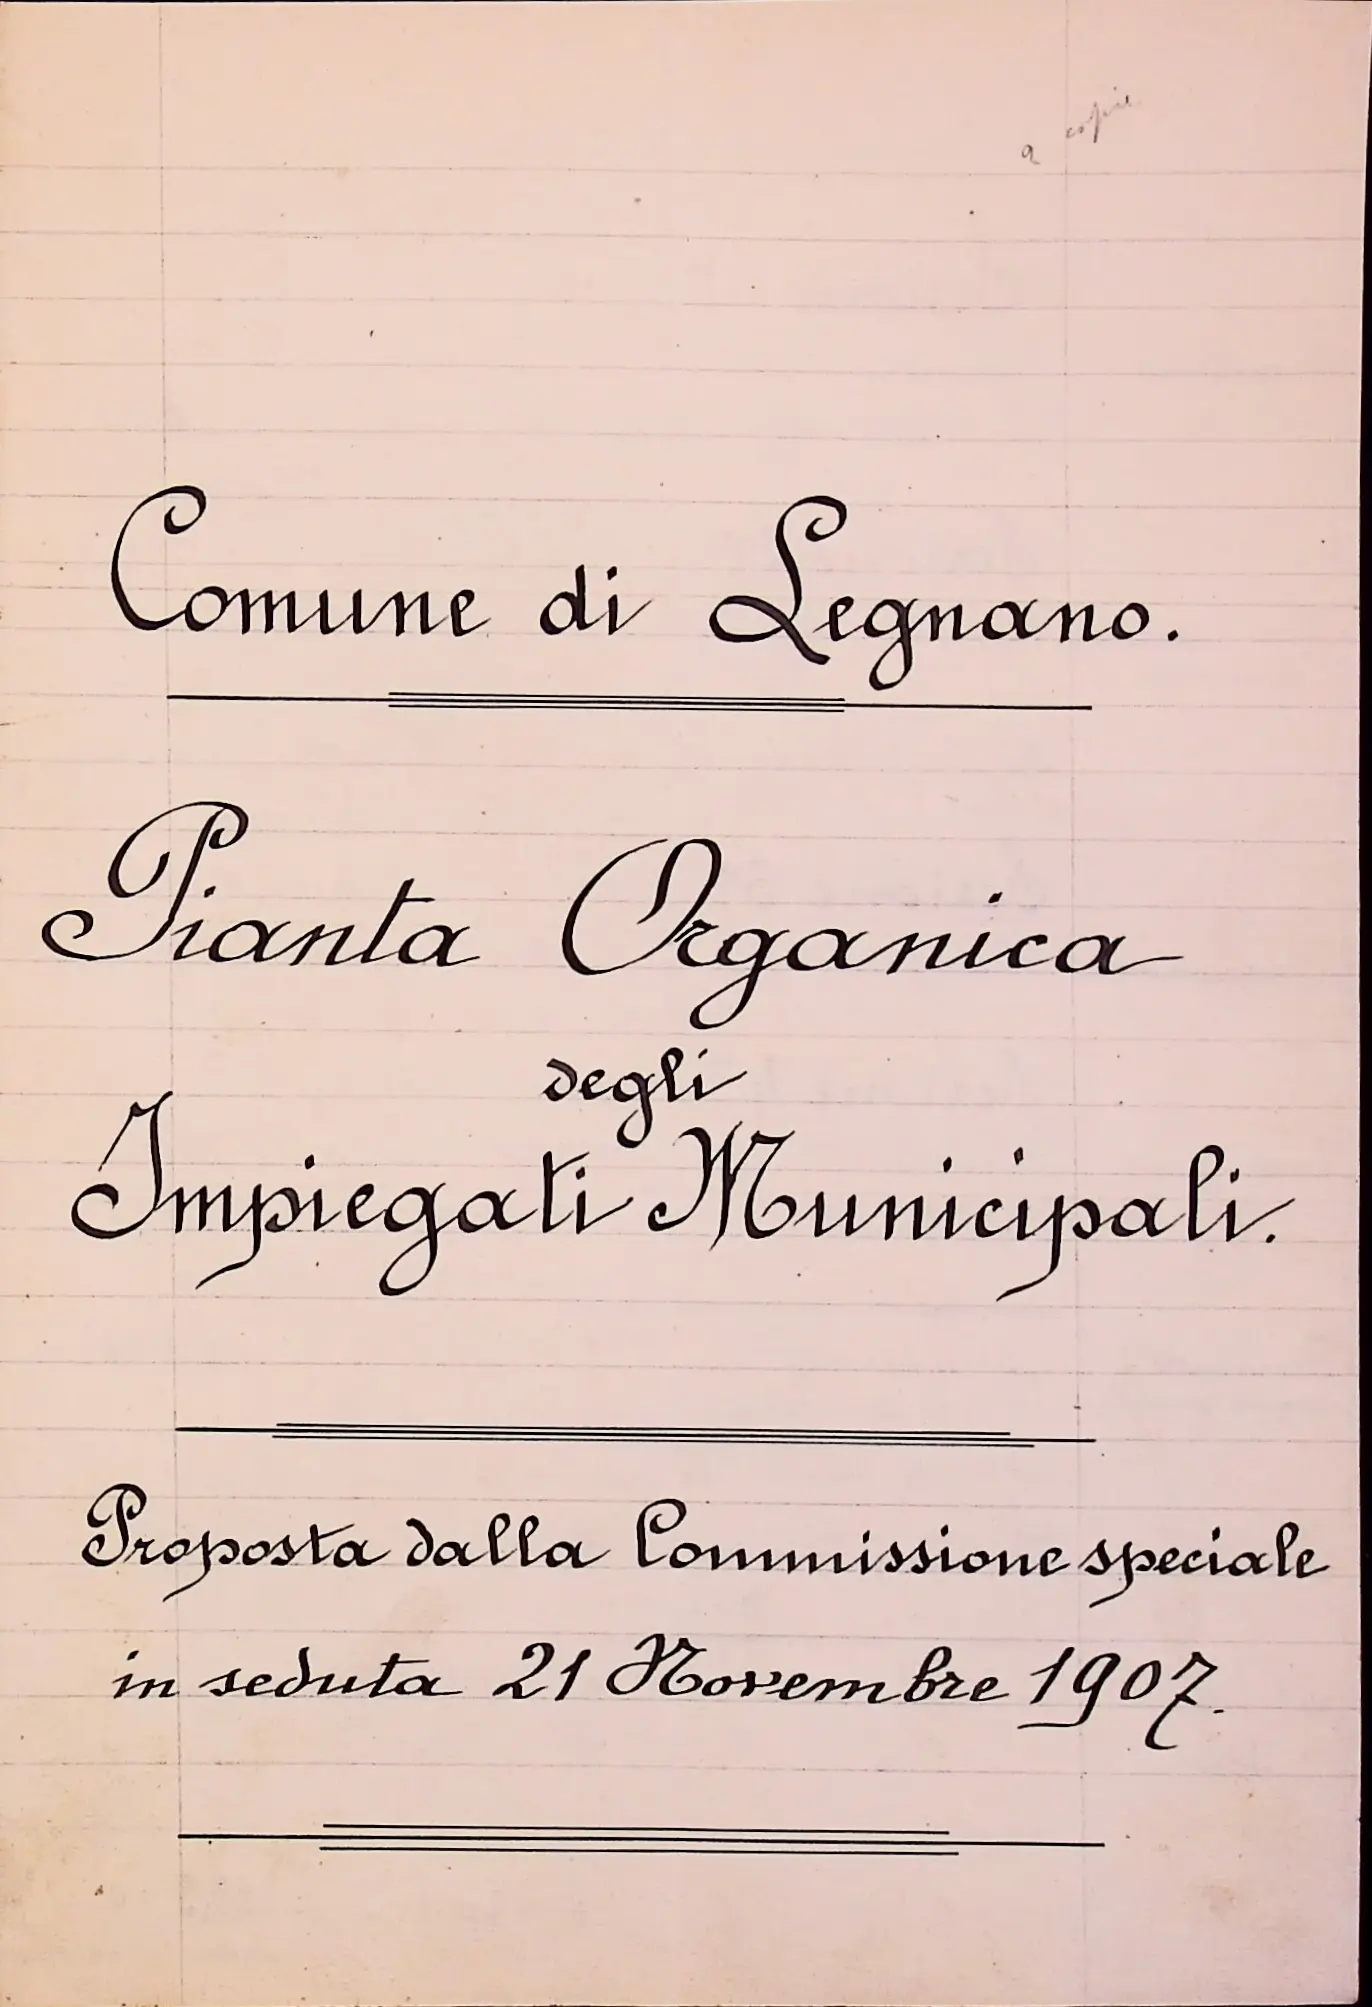 copie
Comune di Legnano.
Pianta Organica
degli
Impiegati Municipali.
Proposta dalla Commissione speciale
in seduta 21 Novembre 1907.